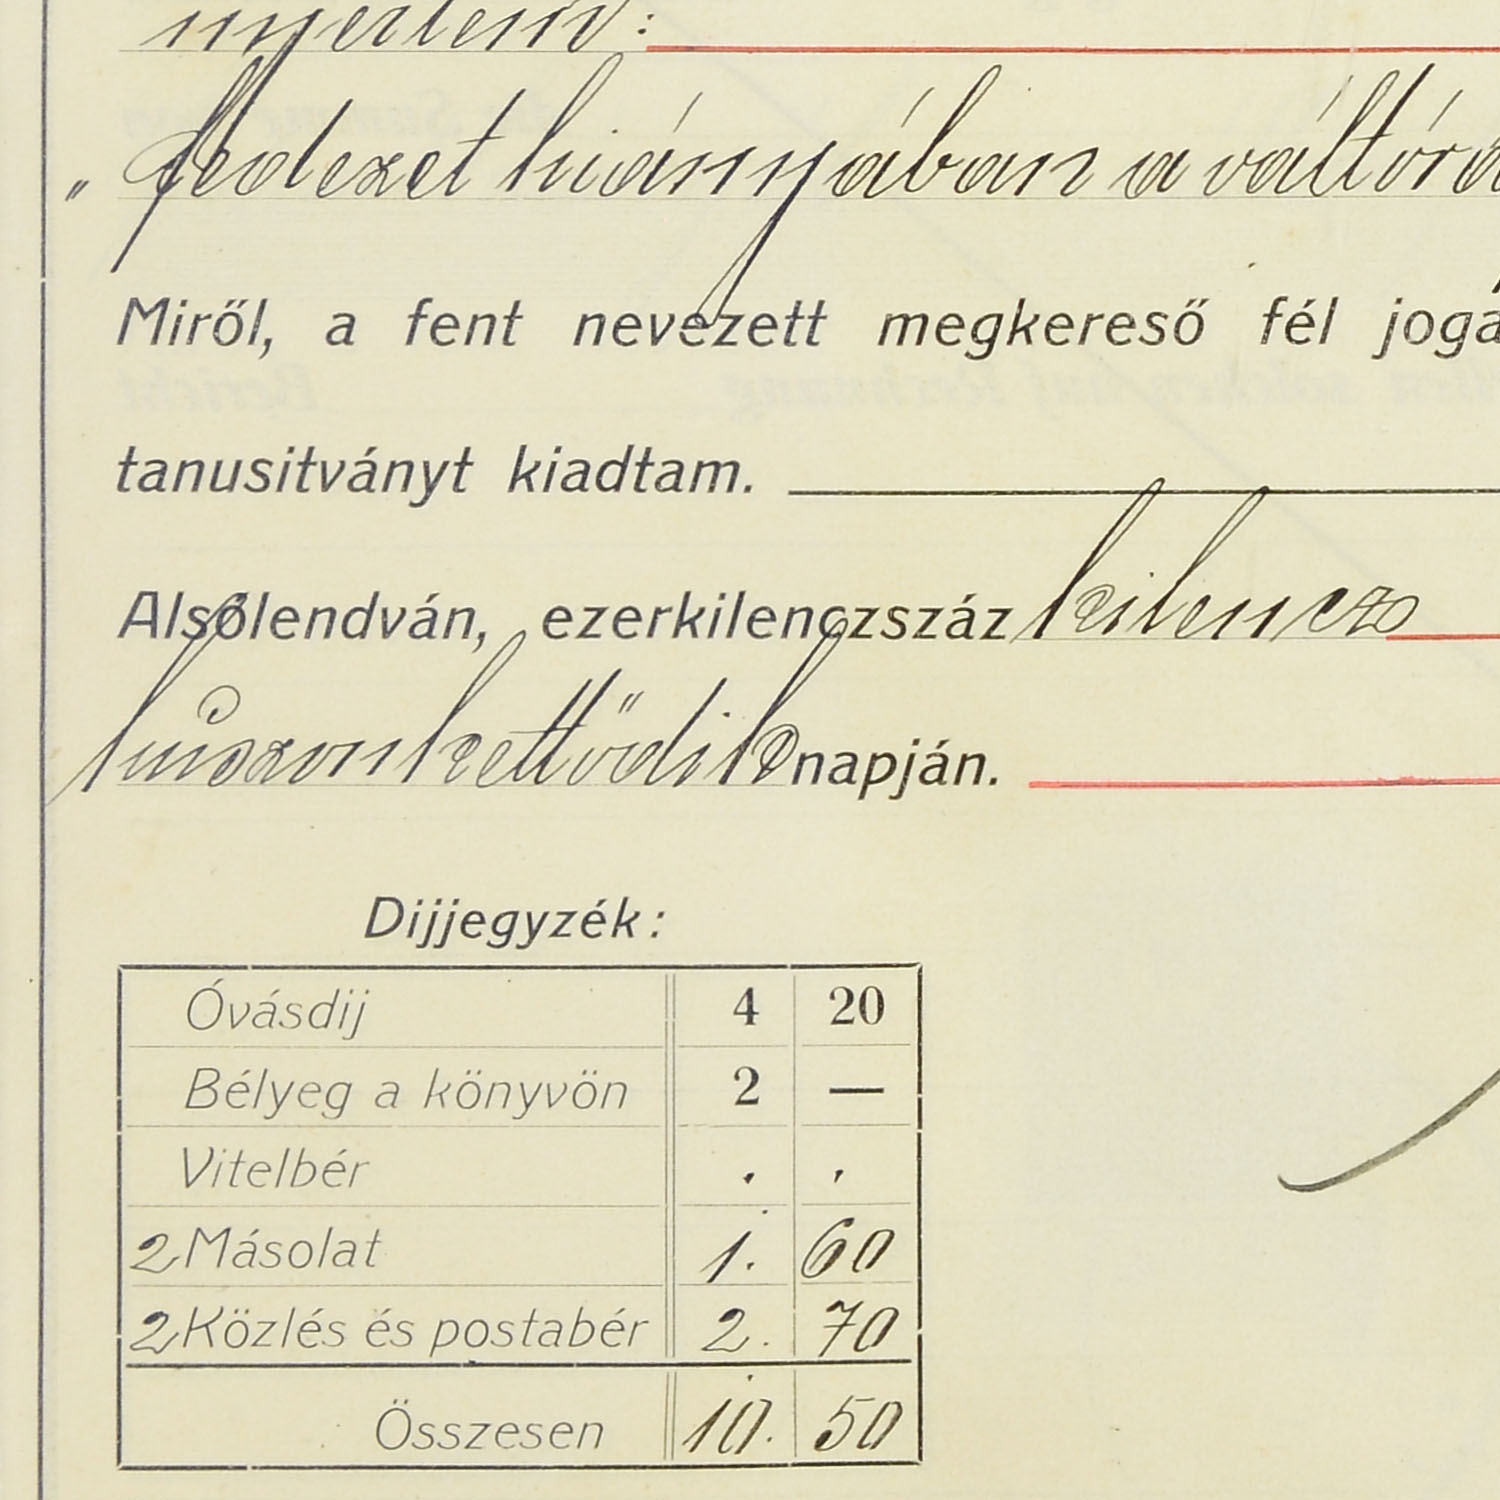 nyertem:
„ fedezet hiányában a váltóra
Miről, a fent nevezett megkereső fél joga
tanusitványt kiadtam.
Alsólendván, ezerkilenczszáz kilencz
huszonkettődik napján.
Dijjegyzék:
Óvásdij 4 20
Bélyeg a könyvön 2 —
Vitelbér . .
2 Másolat 1. 60
2 Közlés és postabér 2. 70
Összesen 10. 50